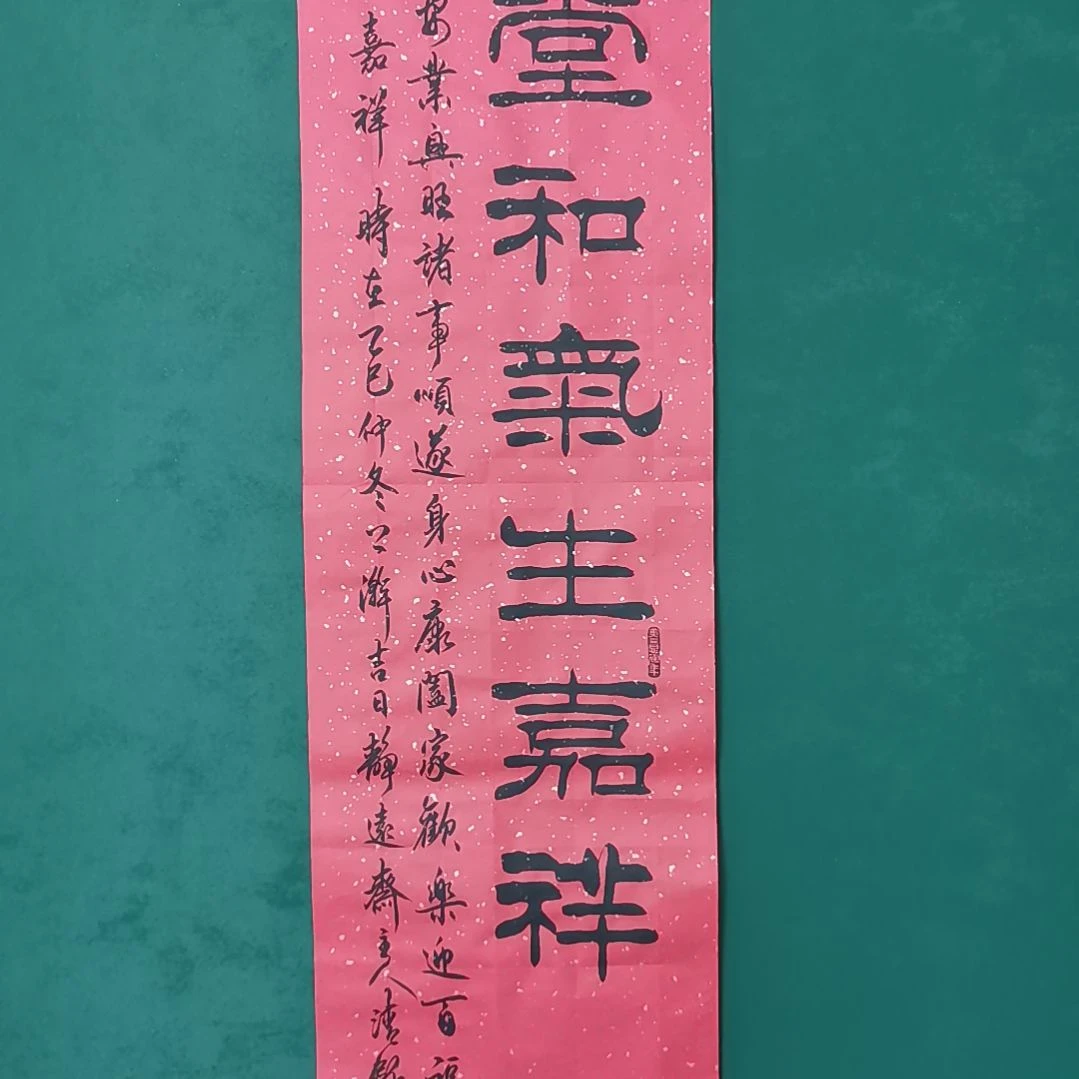 堂和氣生嘉祥
業興旺諸事順遂身心康闔家歡樂迎百福
嘉祥 時在乙巳仲冬上澣吉日靜遠齋主人清